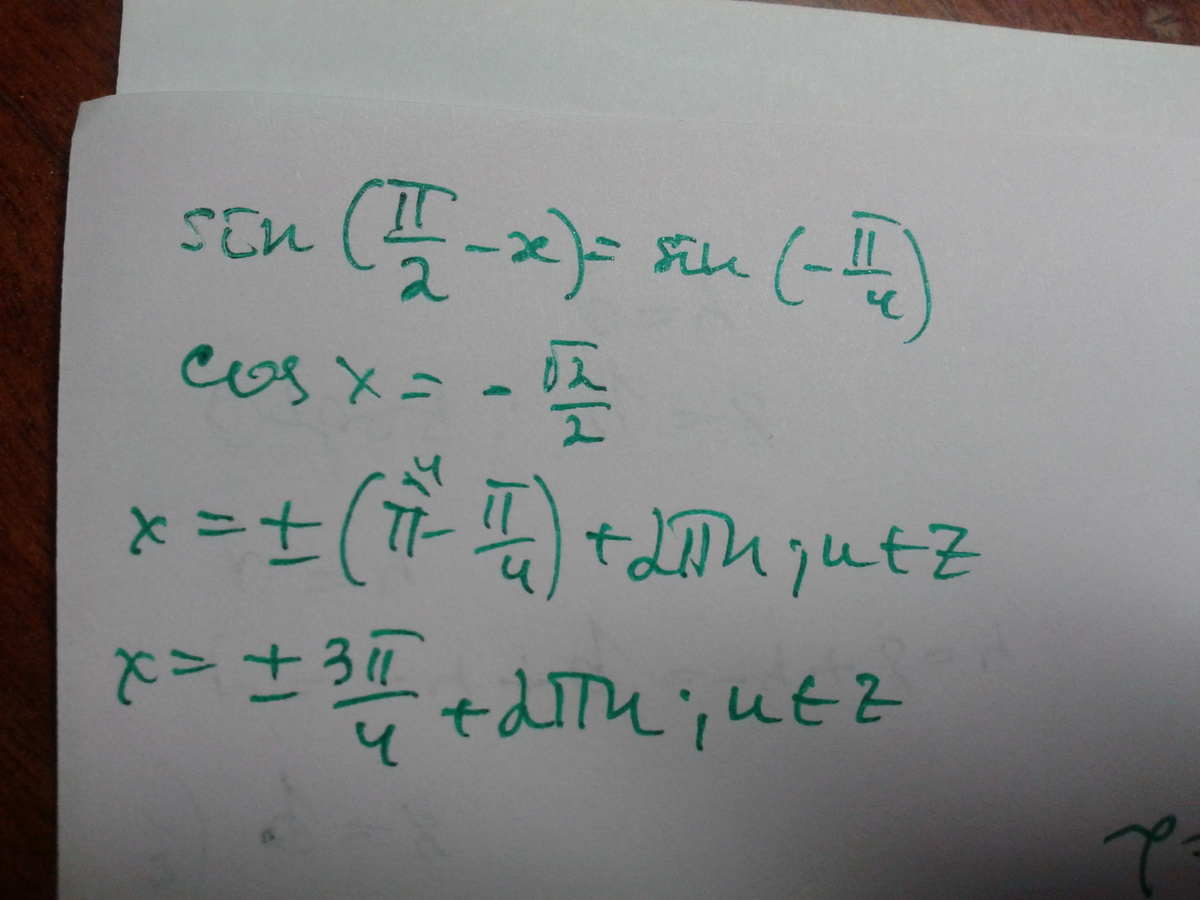 sin (π/2 - x) = sin (-π/4)
cos x = - √2/2
x = ± (π - π/4) + 2πn ; n ∈ Z
x = ± 3π/4 + 2πn ; n ∈ Z